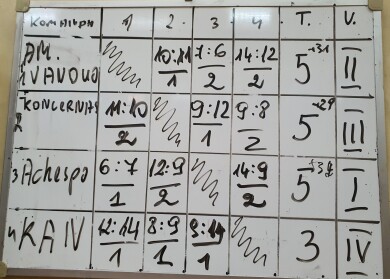 KOMANDA 1 2. 3 4 T. V.
AM. 10:11 7:6 14:12 5 +31 II
VANDUO 1 2 2
KONCERNAS 11:10 9:12 9:8 5 +29 III
2 2 1 2
3 Achespa 6:7 12:9 14:9 5 I
1 2 2
4 KAIV 12:14 8:9 9:14 3 IV
1 1 1